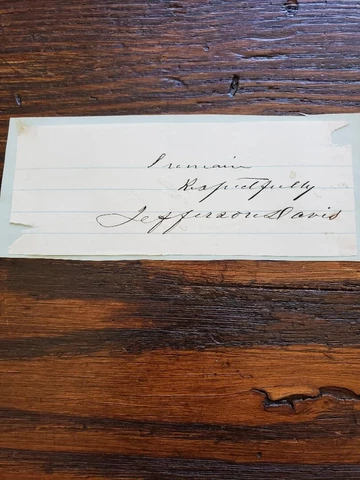 I remain
Respectfully
Jefferson Davis